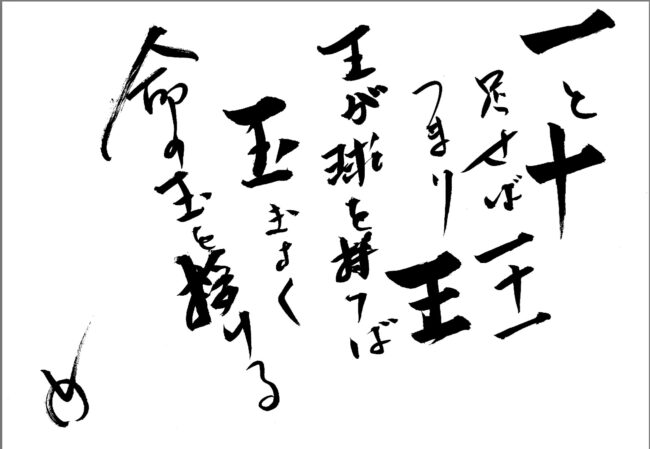 一と十
足せば 一十一
つまり 王
王が球を持てば
玉
命の玉を授ける
め